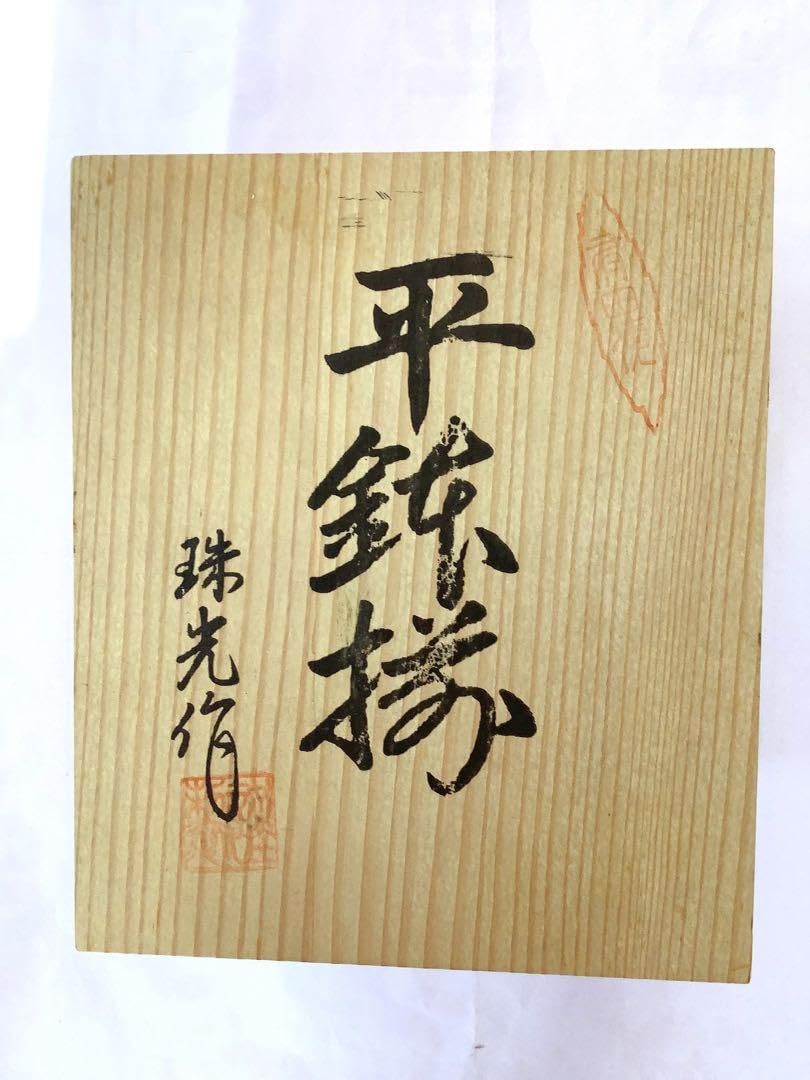 平鉢揃
珠光作